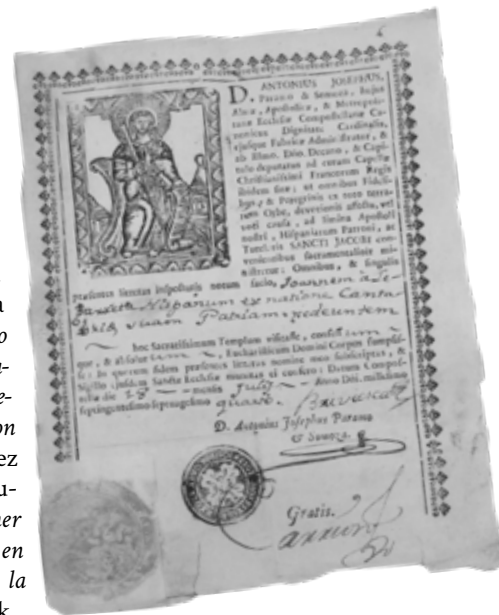 D. ANTONIUS JOSEPHUS,
Paramo & Somoza, hujus
Almæ, Apostolicæ, & Metropoli-
tanæ Ecclesiæ Compostellanæ Ca-
nonicus Dignitate Cardinalis,
ejusque Fabricæ Administrator, &
ab Illmo. Dño. Decano, & Capi-
tulo deputatus ad curam Capellæ
Christianissimi Francorum Regis
ibidem sitæ; ut omnibus Fideli-
bus, & Peregrinis ex toto terra-
rum Orbe, devotionis affectu, vel
voti causa, ad limina Apostoli
nostri, Hispaniarum Patroni, ac
Tutelaris SANCTI JACOBI con-
venientibus sacramentaliter mi-
nistretur: Omnibus, & singulis
præsentes litteras inspecturis notum facio, Joannem à
Hispanum ex natione Canta
suam Patriam
hoc Sacratissimum Templum visitasse,
que, & absolutum, Eucharisticum Domini Corpus sumpsis-
se: In quorum fidem præsentes litteras nomine meo subscriptas, &
Sigillo ejusdem Sanctæ Ecclesiæ munitas ei confero: Datum Compos-
die 18 mensis Julij Anno Dñi. millesimo
septingentesimo septuagesimo quarto.
D. Antonius Josephus Paramo
& Somoza.
Gratis.
on
ez
u-
ner
en
la
k